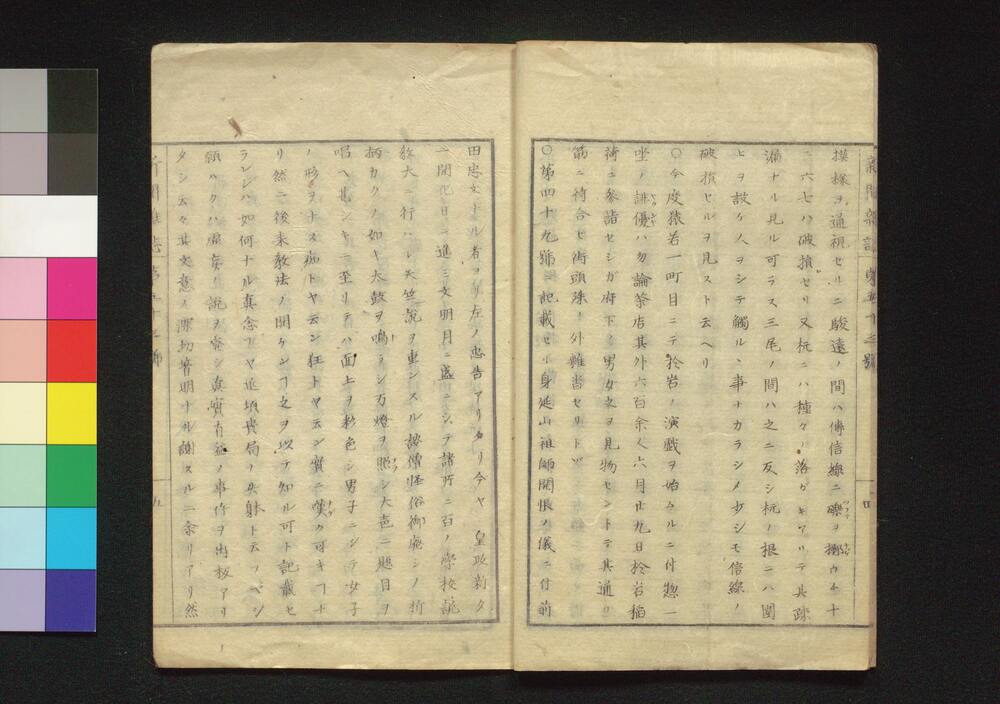 新聞雜誌 第五十三號 四
摸樣ヲ通視セルニ駿遠ノ間ハ傳信線ニ礫ヲ擲ウチ十
ニ六七ハ破損セリ又杭ニハ種々ノ落ガキアリテ其疎
漏ナル見ル可ラス三尾ノ間ハ之ニ反シ杭ノ根ニハ圍
ヒヲ設ケ人ヲシテ觸ルヽ事ナカラシメ少シモ信線ノ
破損セルヲ見スト云ヘリ
○今度猿若一町目ニテ於岩ノ演戯ヲ始ムルニ付惣一
坐ノ誹優ハ勿論茶店其外六百余人六月廿九日於岩稲
荷ニ參詣セシガ府下ノ男女之ヲ見物セントテ其通リ
筋ニ待合セ街頭殊ノ外雜沓セリトゾ
○第四十九號ニ記載セル身延山祖師開帳ノ儀ニ付前
田忠文ナル者ヨリ左ノ忠告アリタリ今ヤ 皇政新タ
ニ開化日ニ進ミ文明月ニ盛ニシテ諸所ニ百ノ學校説
教大ニ行ハレ天竺説ヲ重ンスル諸僧怪俗御廃シノ折
柄カクノ如キ大鼓ヲ鳴ラシ万燈ヲ照シ大音ニ題目ヲ
唱ヘ甚シキニ至リテハ面上ヲ彩色シ男子ニシテ女子
ノ形ヲナス痴トヤ云ン狂トヤ云ン實ニ嘆ク可キヿト
リ然ニ後来教法ノ開ケンヿ之ヲ以テ知ル可ト記載セ
ラレシハ如何ナル真念ソヤ近頃貴局ノ失躰ト云ツベシ
願ハクハ虚妄ノ説ヲ除シ真實有益ノ事件ヲ出板アリ
タシ云々其文意ノ深切著明ナル謝スルニ余リアリ然
新聞雜誌 第五十三號 五